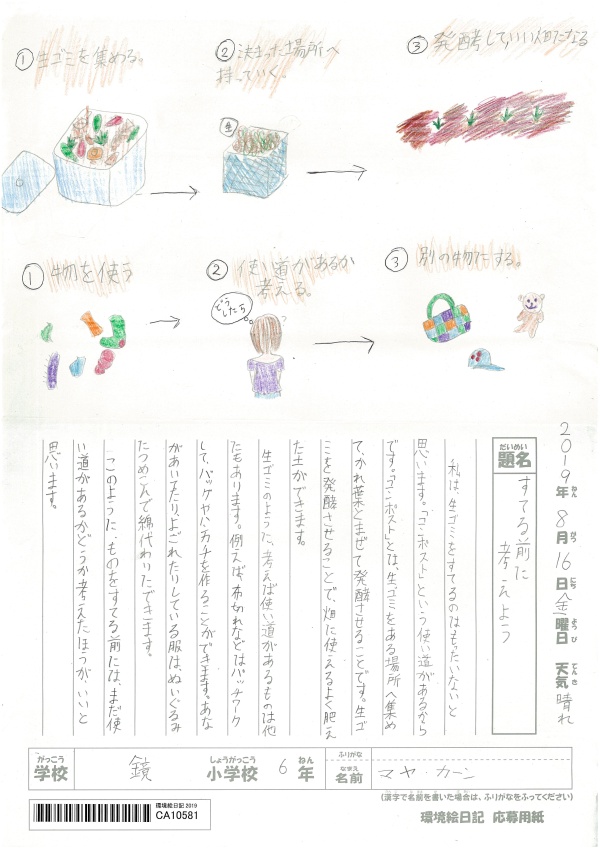 ①生ゴミを集める。
②決まった場所へ
持っていく。
③発酵して、いい畑になる
生
①物を使う
②使い道があるか
考える。
③別の物にする。
どう
したら
?
2019年ねん8月がつ16日にち金曜日ようび 天気てんき 晴れ
だいめい
題名
すてる前に
考えよう
私は、生ゴミをすてるのはもったいないと
思います。「コンポスト」という使い道があるから
です。「コンポスト」とは、生ゴミをある場所へ集め
て、かれ葉とまぜて発酵させることです。生ゴ
ミを発酵させることで、畑に使えるよく肥え
た土ができます。
生ゴミのように、考えば使い道があるものは他
にもあります。例えば、布切れなどはパッチワーク
して、バッグやハンカチを作ることができます。あな
があいてたり、よごれたりしている服は、ぬいぐるみ
につめこんで綿代わりにできます。
このように、ものをすてる前には、まだ使
い道があるかどうか考えたほうがいいと
思います。
がっこう
学校
鏡
しょうがっこう
小学校
6
ねん
年
ふりがな
なまえ
名前
マヤ・カーン
(漢字で名前を書いた場合は、ふりがなをふってください)
環境絵日記 2019
CA10581
環境絵日記 応募用紙